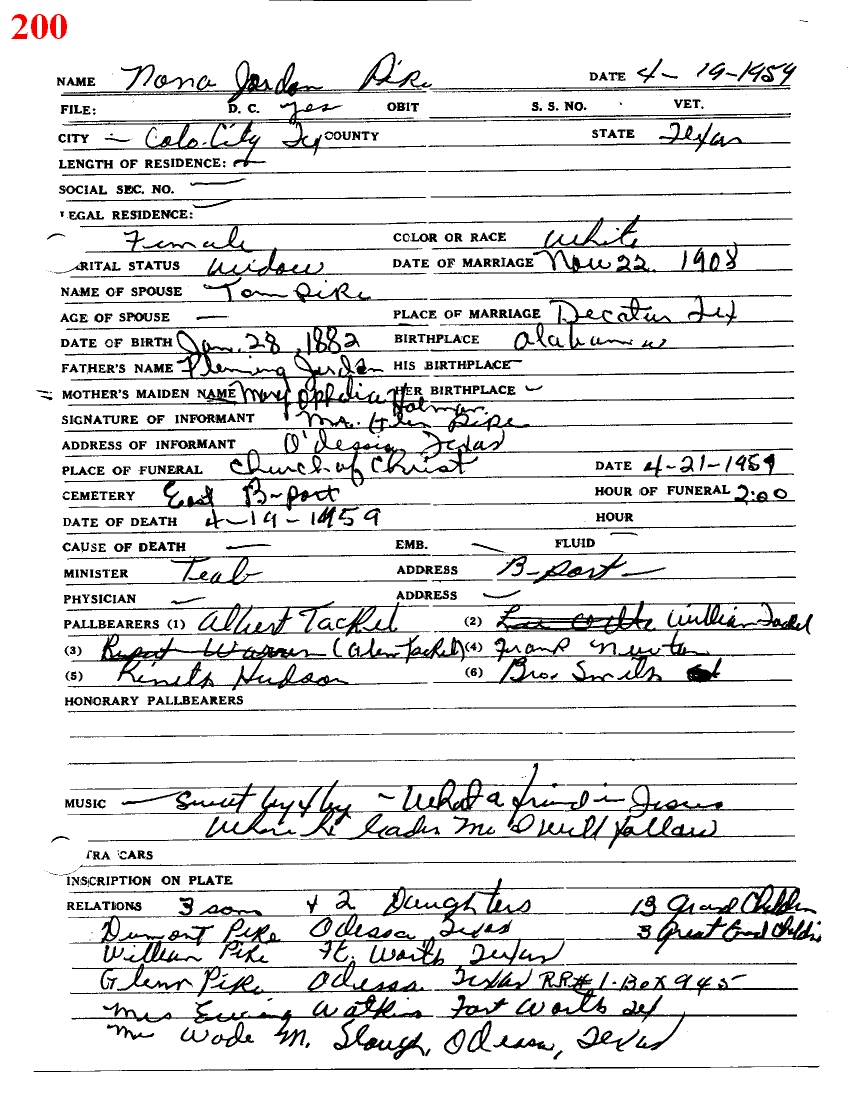 200
NAME Nona Jordan Pike DATE 4-19-1959
FILE: D. C. yes OBIT S. S. NO. VET.
CITY - Colo. City Tex COUNTY STATE Texas
LENGTH OF RESIDENCE: -
SOCIAL SEC. NO. -
LEGAL RESIDENCE: -
Female COLOR OR RACE White
ARITAL STATUS Widow DATE OF MARRIAGE Nov 22. 1908
NAME OF SPOUSE Tom Pike
AGE OF SPOUSE - PLACE OF MARRIAGE Decatur Tex
DATE OF BIRTH Jan. 28, 1882 BIRTHPLACE Alabama
FATHER'S NAME Fleming Jordan HIS BIRTHPLACE -
MOTHER'S MAIDEN NAME Mary Ophelia Holman HER BIRTHPLACE -
SIGNATURE OF INFORMANT Mr. Glen Pike
ADDRESS OF INFORMANT O'dessia Texas
PLACE OF FUNERAL Church of Christ DATE 4-21-1959
CEMETERY East B-port HOUR OF FUNERAL 2:00
DATE OF DEATH 4-19-1959 HOUR -
CAUSE OF DEATH - EMB. - FLUID
MINISTER Teab ADDRESS B-port -
PHYSICIAN - ADDRESS -
PALLBEARERS (1) Albert Tackel (2) William Tackel
(3) Warren (Alen Tackel) (4) Frank Newton
(5) Kineth Hudson (6) Bro. Smith
HONORARY PALLBEARERS
MUSIC - Sweet by & by - What a friend in Jesus
Where he leades Me I will follow
TRA CARS
INSCRIPTION ON PLATE
RELATIONS 3 sons & 2 Daughters 13 Grand Children
Dumont Pike Odessa Texas 3 Great Grand Children
William Pike Ft. Worth Texas
Glenn Pike Odessa Texas RR# 1-Box 945
Mrs Ewing Watkins Fort Worth Tex
Mrs Wade M. Slough, Odessa, Texas